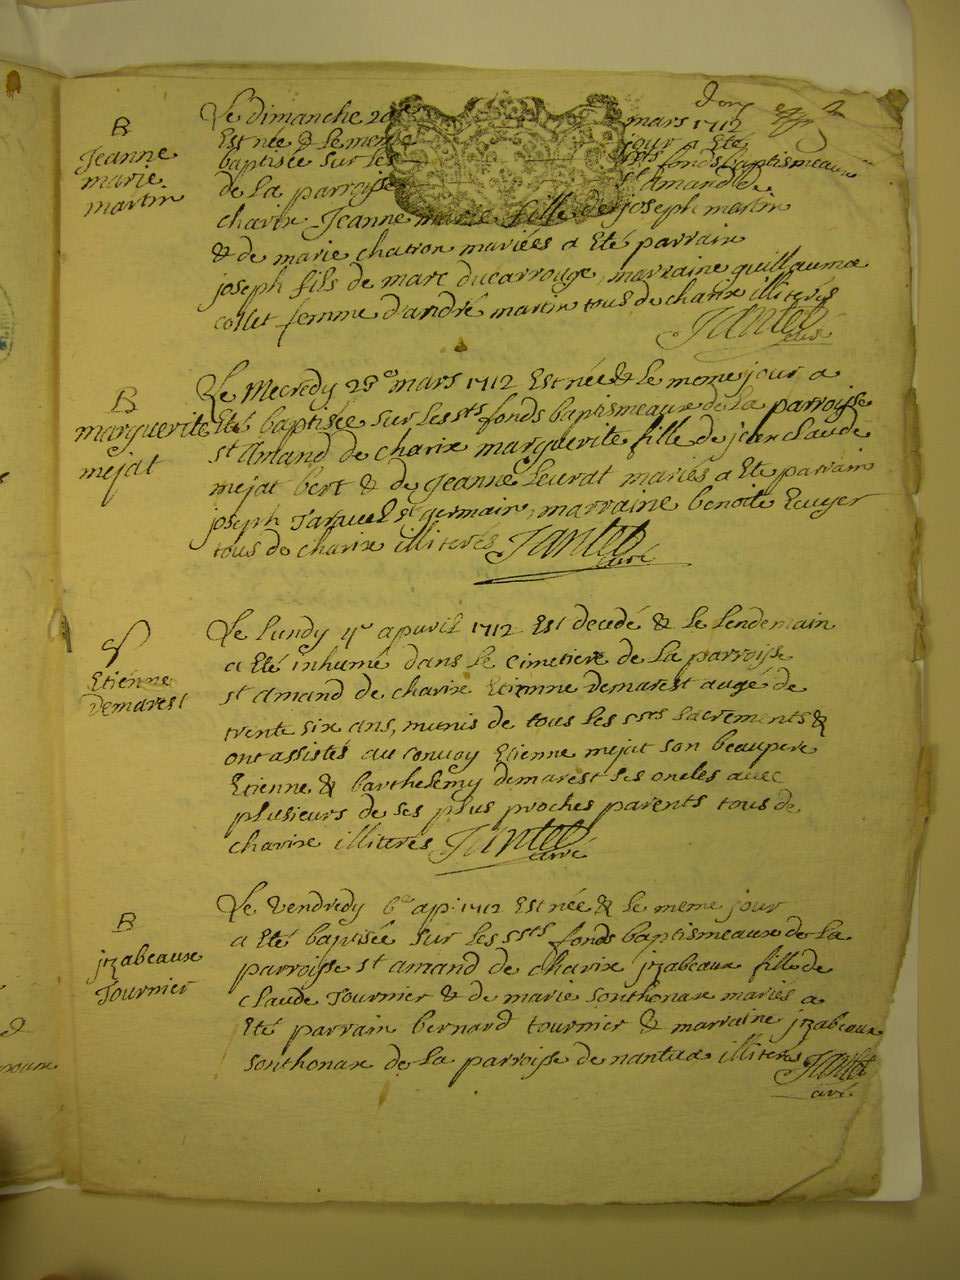 B
Jeanne
marie
martin
Le dimanche 20e mars 1712
Est née & le meme jour a Eté
baptisée sur les sts fonds baptismeaux
de La parroisse st Amand de
charix Jeanne marie fille de joseph martin
& de marie chatron mariées a Eté parrain
joseph fils de marc ducarrouge, marraine guillauma
collet femme d'andré martin tous de charix illiterés
Jantet
curé
B
marguerite
mejat
Le Mecredy 23e mars 1712 Est née & le meme jour a
Eté baptisée sur les sts fonds baptismeaux de La parroisse
st Amand de charix marguerite fille de jean claude
mejat bert & de Jeanne Leurat mariés a Eté parrain
joseph Taravel st germain, marraine benoite Euvyer
tous de charix illiterés Jantet
curé
S
Etienne
Demarest
Le Lundy 4e apuril 1712 Est decedé & le Lendemain
a Eté inhumé dans le Cimetiere de La parroisse
st Amand de charix Etienne demarest augé de
trente six ans, munis de tous les ssts sacrements &
ont assistés au convoy Etienne mejat son beaupere
Etienne & barthelemy demarest ses oncles avec
plusieurs de ses plus proches parents tous de
charix illiterés Jantet
curé
B
jzabeaux
Tournier
Le Vendredy 6e ap: 1712 Est née & le meme jour
a Eté baptisée sur les ssts fonds baptismeaux de La
parroisse st amand de charix jzabeaux fille de
claude Tournier & de marie sonthonax mariés a
Eté parrain bernard tournier & marraine jzabeaux
sonthonax de La parroisse de nantua illiterés Jantet
curé